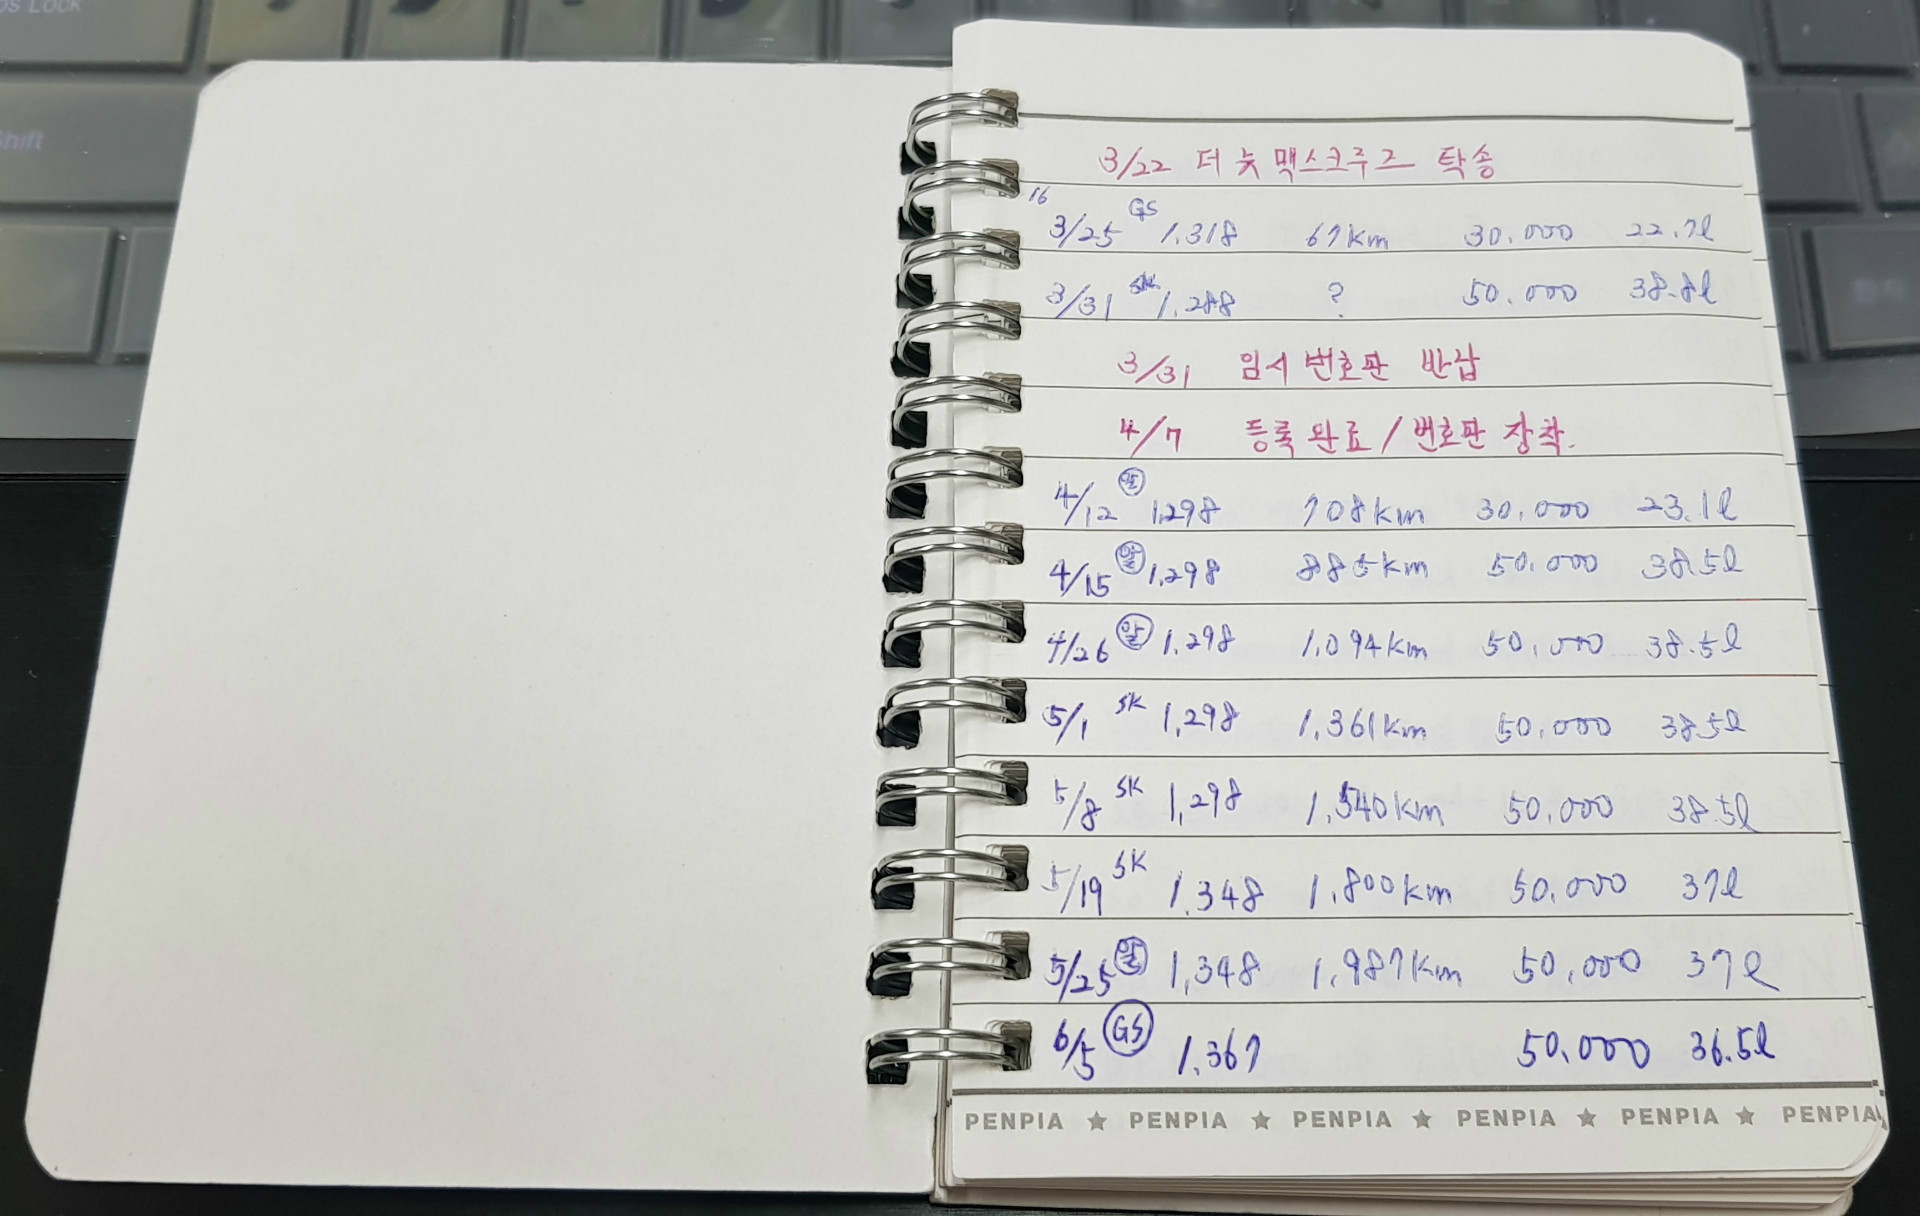 os Lock
Shift
3/22 더 뉴 맥스크루즈 탁송
16 3/25 GS 1.318 67km 30.000 22.7l
3/31 SK 1.288 ? 50.000 38.8l
3/31 임시 번호판 반납
4/7 등록 완료 / 번호판 장착.
4/12 알 1.298 708km 30.000 23.1l
4/15 알 1.298 885km 50.000 38.5l
4/26 알 1.298 1.094km 50.000 38.5l
5/1 SK 1,298 1.361km 50.000 38.5l
5/8 SK 1,298 1.540km 50.000 38.5l
5/19 SK 1.348 1.800km 50.000 37l
5/25 알 1,348 1.987km 50.000 37l
6/5 GS 1.367 50.000 36.5l
PENPIA ★ PENPIA ★ PENPIA ★ PENPIA ★ PENPIA ★ PENPIA